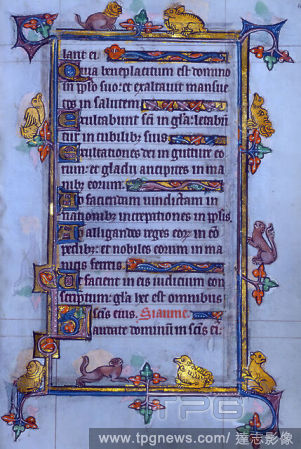 lant ei
Quia beneplacitum est domino
in ipso suo: et exaltauit mansue
tos in salutem
Exultabunt sci in gla: letabu
tur in cubilib; suis
Exultationes dei in gutture eo
rum: et gladii ancipites in ma
nib; eorum.
Ad faciendam uindictam in
nationib; increpationes in pplis.
Ad alligandos reges eor in co
pedib; et nobiles eorum in ma
nicis ferreis
Ut faciant in eis iudicium con
scriptum: gla hec est omnibus
scis eius. Siaume.
Laudate dominu in scis ei:
TPG
www.tpgnews.com/ 達志影像